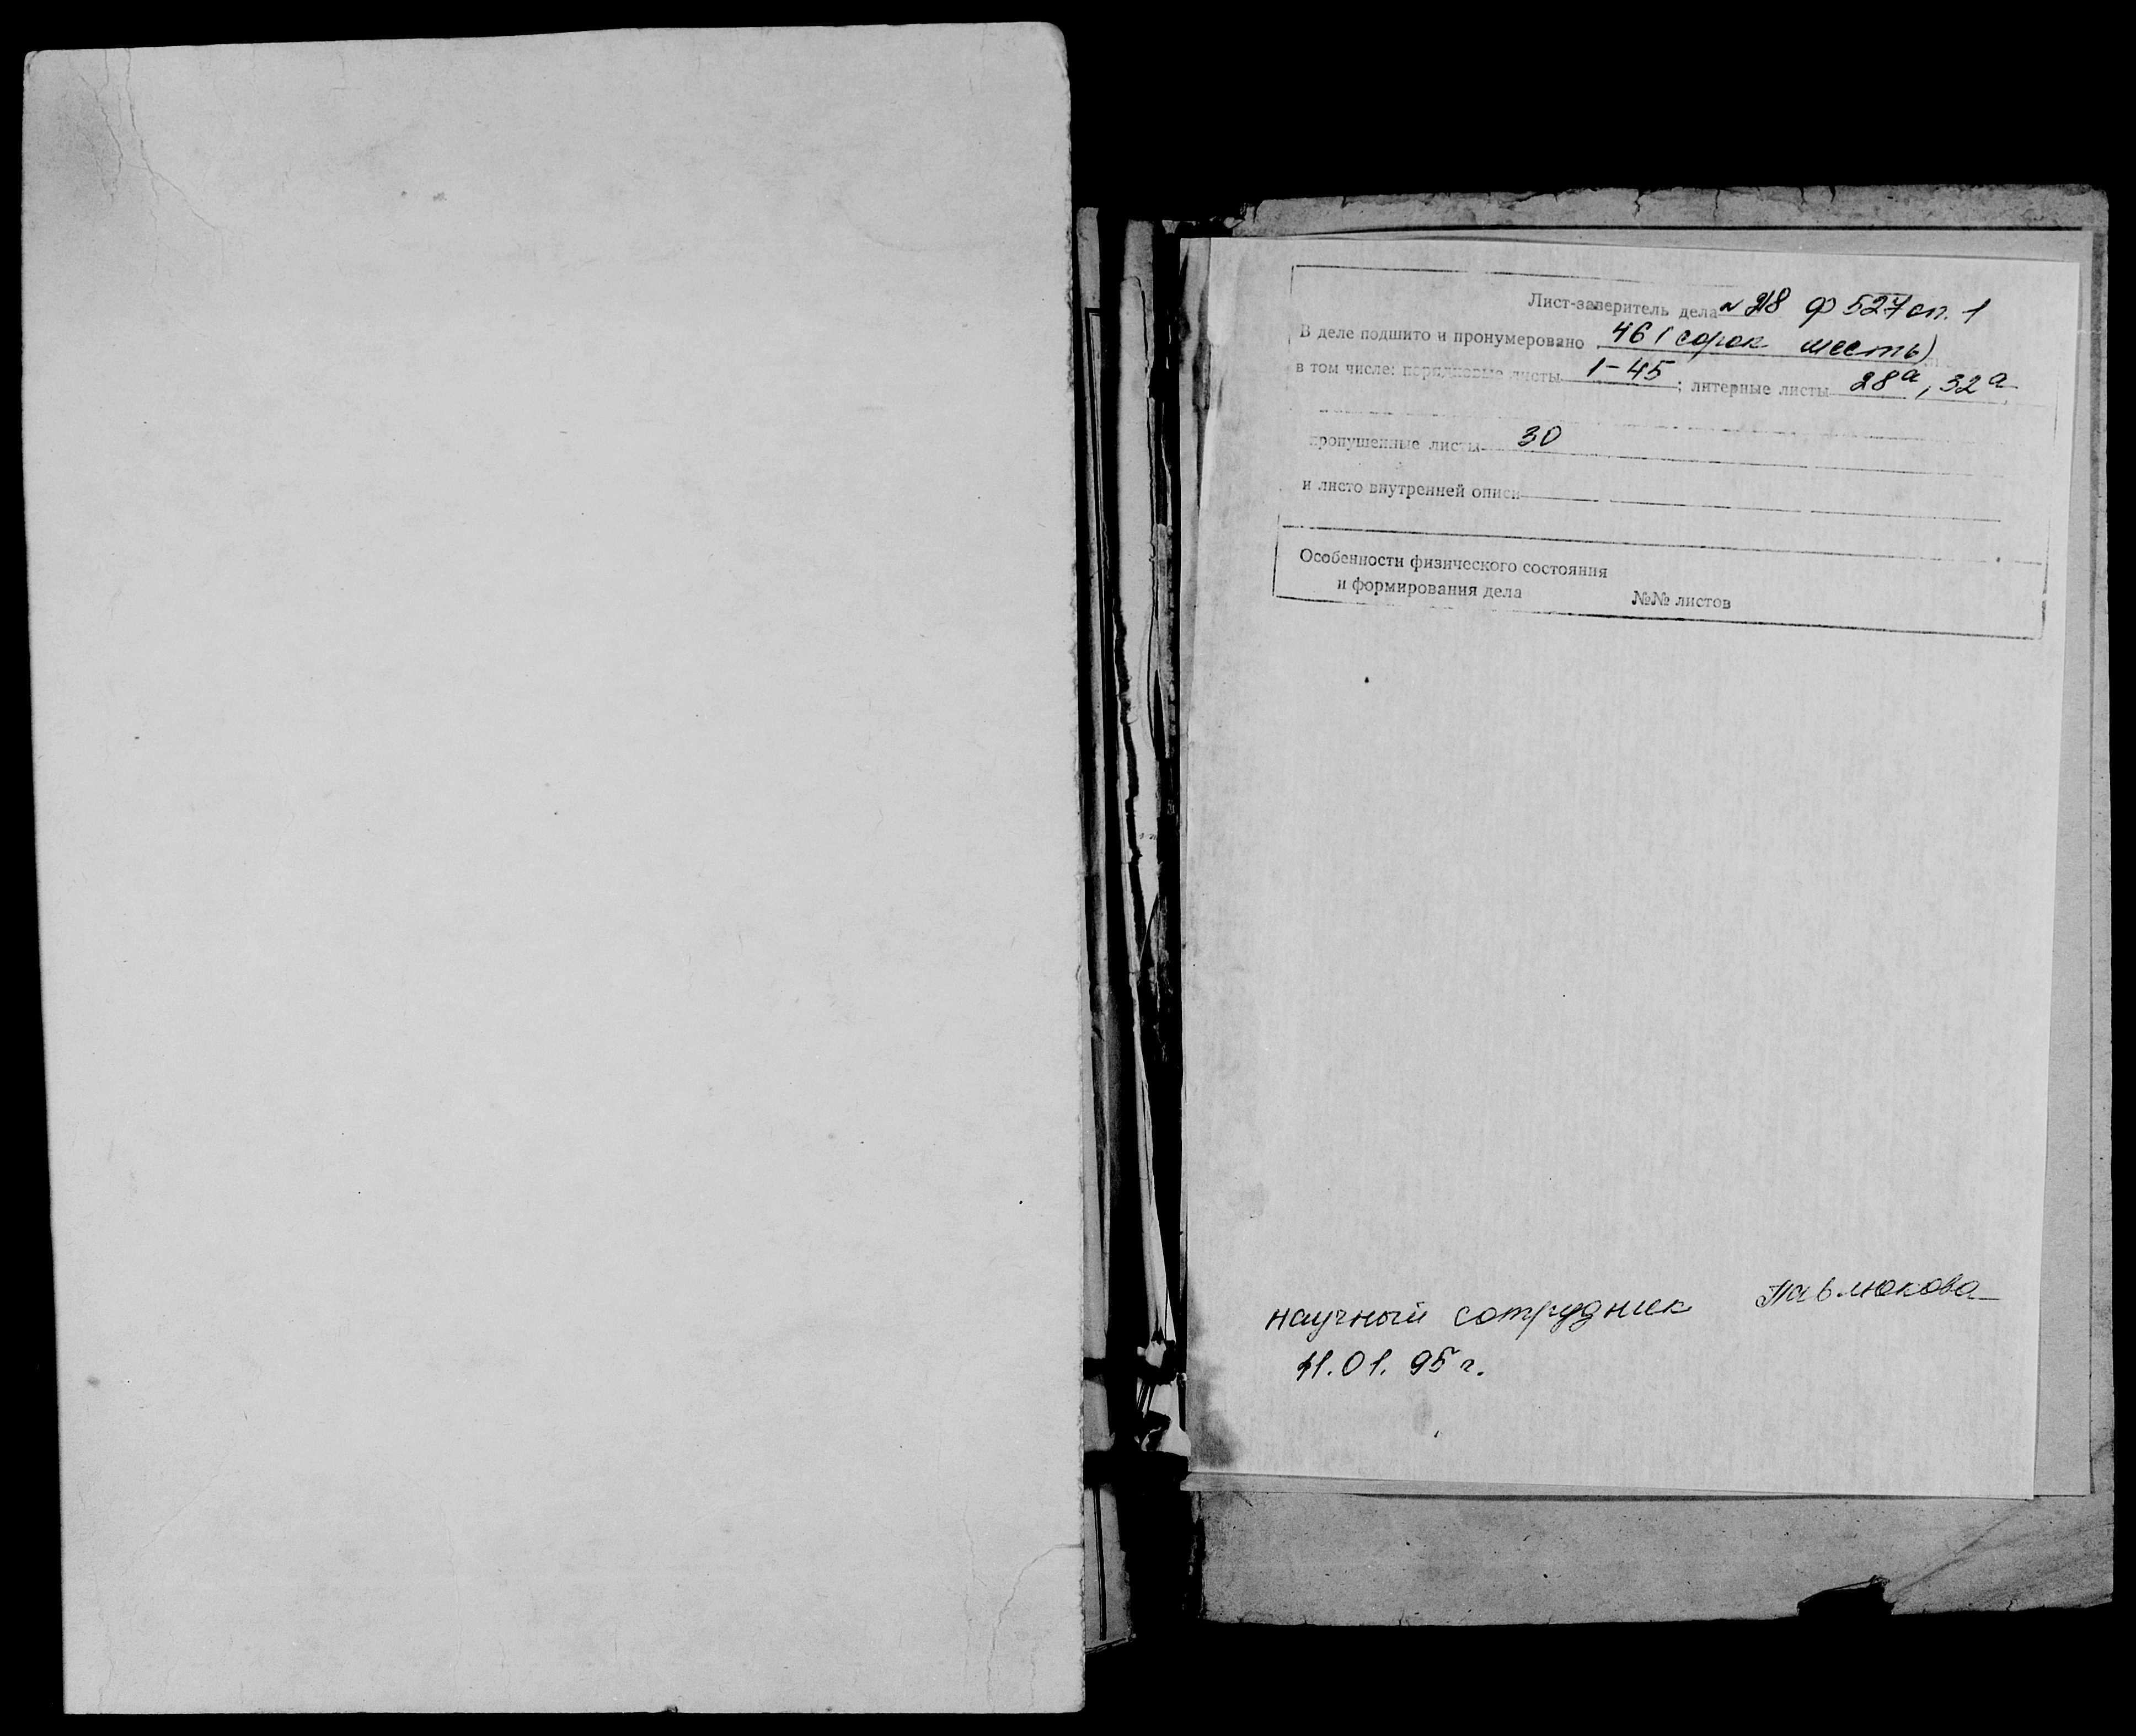 Лист-заверитель дела № 218 ф 527 оп. 1
В деле подшито и пронумеровано 46 (сорок шесть)
в том числе: порядковые листы 1-45; литерные листы 28а, 32а
пропущенные листы 30
и листо внутренней описи
Особенности физического состояния
и формирования дела №№ листов
научный сотрудник Павлюкова
11.01.95 г.